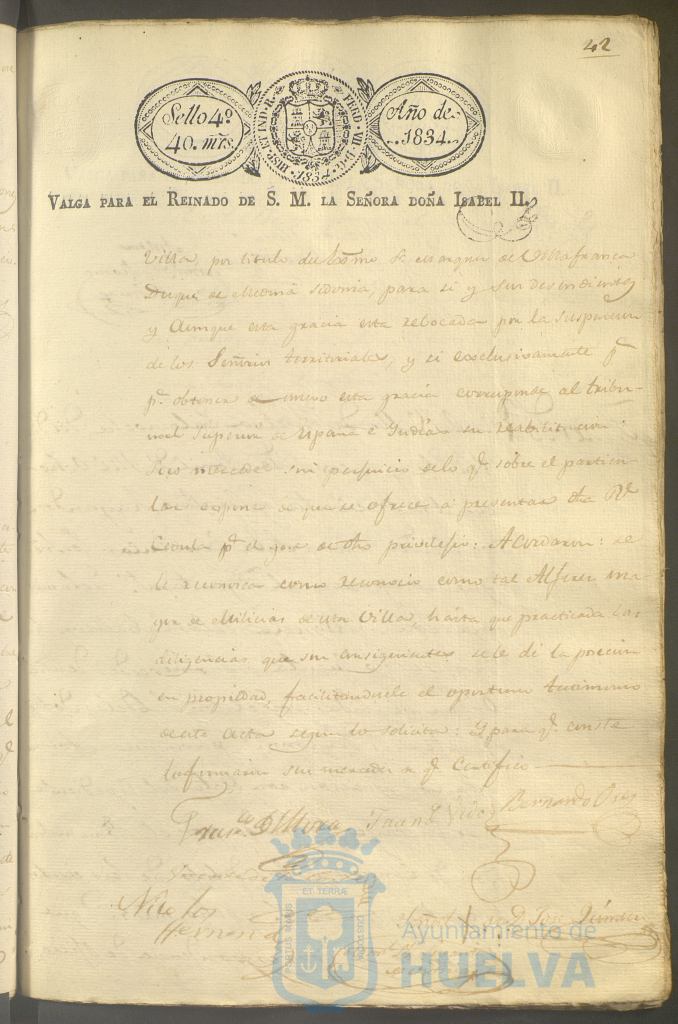 42
Sello 4º
40. mrs.
HIS. ET IND. R. FERD. VII. D. G. 1834.
Año de
1834.
VALGA PARA EL REINADO DE S. M. LA SEÑORA DOÑA ISABEL II.
Villa, por titulo del Exmo Sr. Marques de Villafranca
Duque de Medina Sidonia, para si y sus desendientes
y Aunque esta gracia esta rebocada por la suspencion
de los Señorios territoriales, y si exsclusivamente
pª obtener de nuevo esta gracia corresponde al tribu-
nal Superior de España e Indias su reabilitacion:
Sus mercedes sin perjuicio de lo qe sobre el particu-
lar espone de que se ofrece a presentar dha Rl
Cedula pª el goze de dho privilegio: Acordaron: se
le reconosca como reconocio como tal Alferez ma-
yor de Milicias de esta Villa, hasta que practicada las
diligencias que son consiguientes se le dé la posecion
en propiedad, facilitandosele el oportuno testimonio
de este Acta segun lo solicita: Y para qe conste
lo firmaron sus mercedes de qe Certifico
Bernardo
Nicolas
Hernand
Jose
ET TERRÆ
PORTUS MARIS
CUSTODIA
Ayuntamiento de
HUELVA